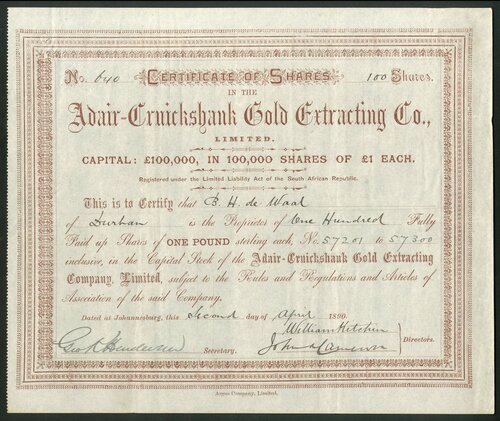 No. 640 CERTIFICATE OF SHARES 100 Shares.
IN THE
Adair-Cruickshank Gold Extracting Co.,
LIMITED.
CAPITAL: £100,000, IN 100,000 SHARES OF £1 EACH.
Registered under the Limited Liability Act of the South African Republic.
This is to Certify that B. H. de Waal
of Durban is the Proprietor of One Hundred Fully
Paid up Shares of ONE POUND sterling each, No. 57201 to 57300
inclusive, in the Capital Stock of the Adair-Cruickshank Gold Extracting
Company, Limited, subject to the Rules and Regulations and Articles of
Association of the said Company.
Dated at Johannesburg, this Second day of April 1890.
William Kitchin
Geo. Henderson Secretary. John Cameron Directors.
Argus Company, Limited.